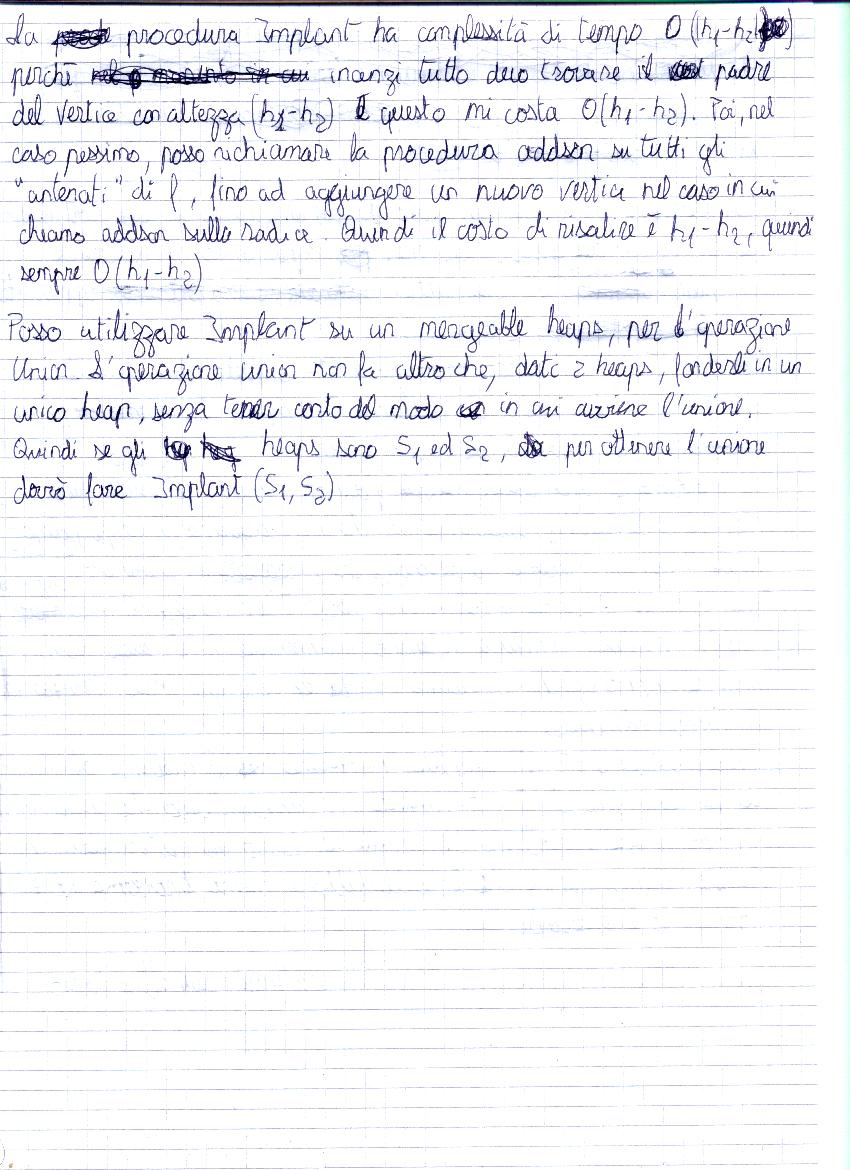 La procedura Implant ha complessità di tempo O(|h₁-h₂|)
perché innanzi tutto devo trovare il padre
del vertice con altezza (h₁-h₂) E questo mi costa O(h₁-h₂). Poi, nel
caso pessimo, posso richiamare la procedura addson su tutti gli
"antenati" di f, fino ad aggiungere un nuovo vertice nel caso in cui
chiamo addson sulla radice. Quindi il costo di risalire è h₁-h₂, quindi
sempre O(h₁-h₂)
Posso utilizzare Implant su un mergeable heaps, per l'operazione
Union. L'operazione union non fa altro che, dati 2 heaps, fonderli in un
unico heap, senza tener conto del modo in cui avviene l'unione.
Quindi se gli heaps sono S₁ ed S₂, per ottenere l'unione
dovrò fare Implant (S₁, S₂)